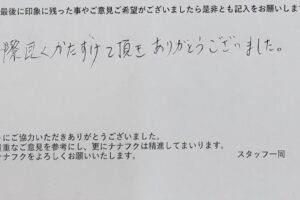 最後に印象に残った事やご意見ご希望がございましたら是非とも記入をお願いします
際良くかたずけて頂きありがとうございました。
にご協力いただきありがとうございました。
重なご意見を参考にし、更にナナフクは精進してまいります。
ナナフクをよろしくお願いいたします。
スタッフ一同